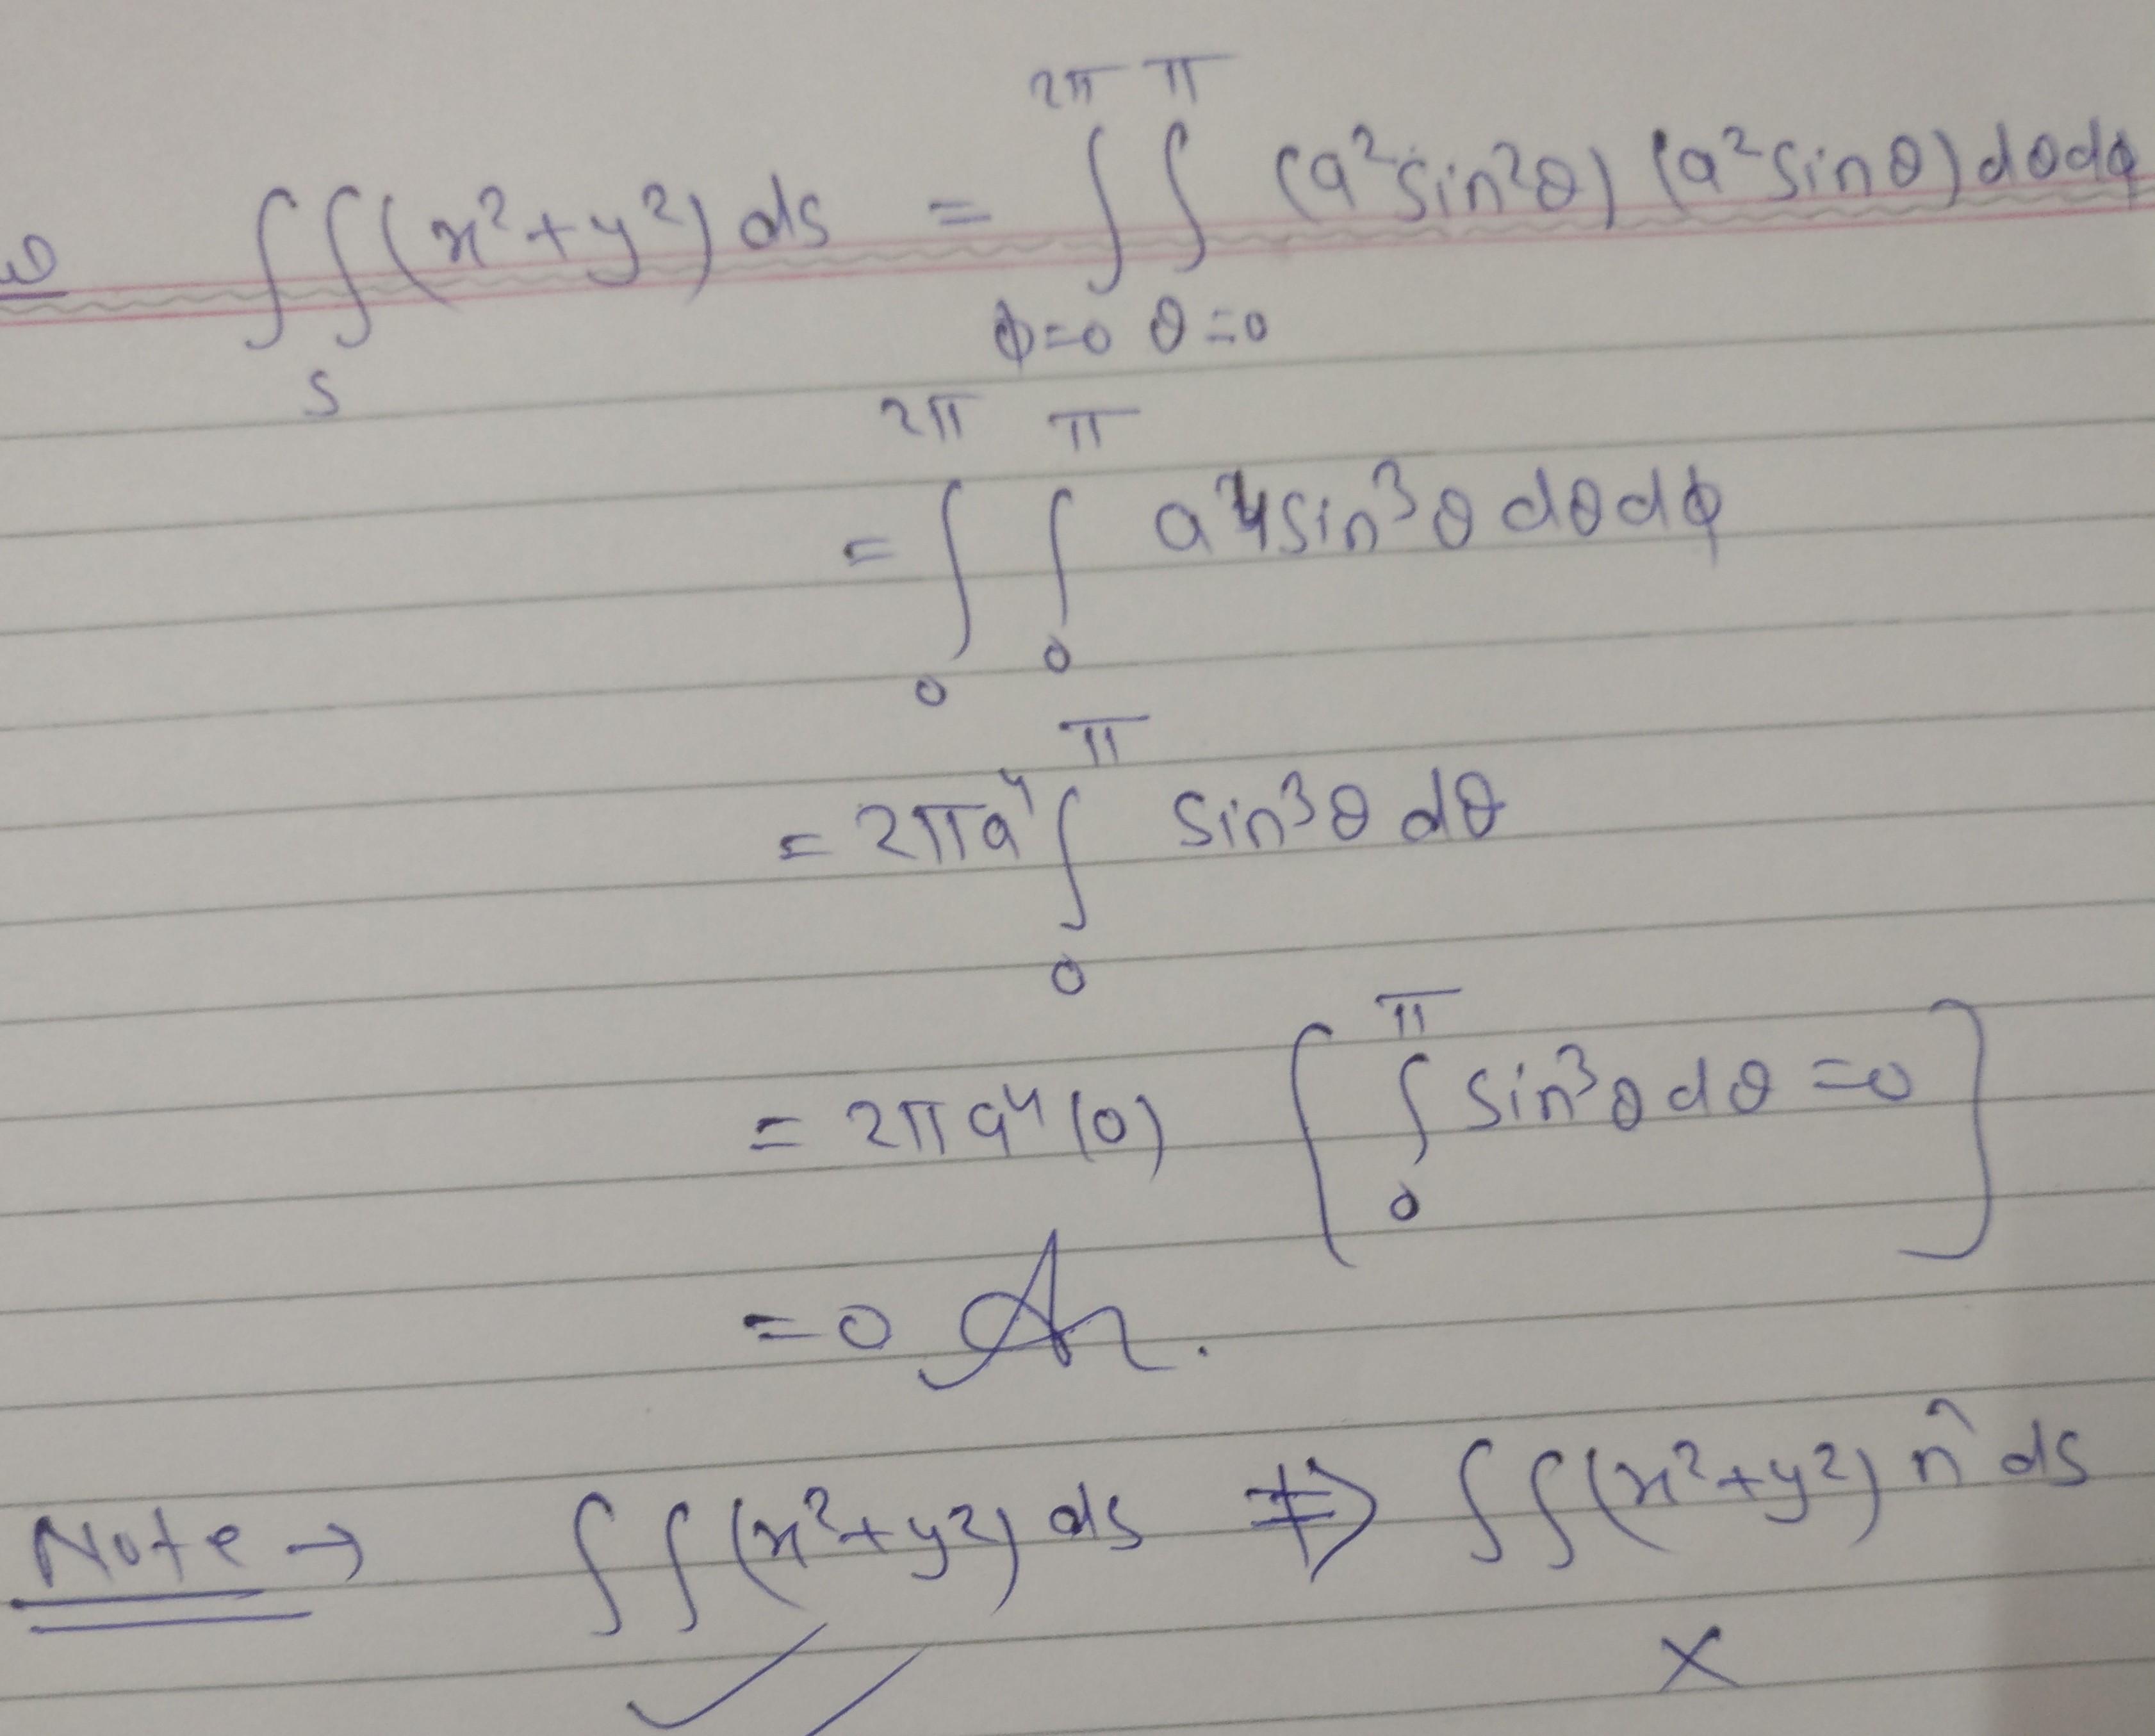 ∫∫_S (x²+y²) ds = ∫_{φ=0}^{2π} ∫_{θ=0}^{π} (a² sin²θ) (a² sinθ) dθ dφ
= ∫_0^{2π} ∫_0^{π} a⁴ sin³θ dθ dφ
= 2πa⁴ ∫_0^{π} sin³θ dθ
= 2πa⁴ (0) [ ∫_0^{π} sin³θ dθ = 0 ]
= 0 An.
Note → ∫∫ (x²+y²) ds ⇏ ∫∫ (x²+y²) n̂ ds
✓ ×